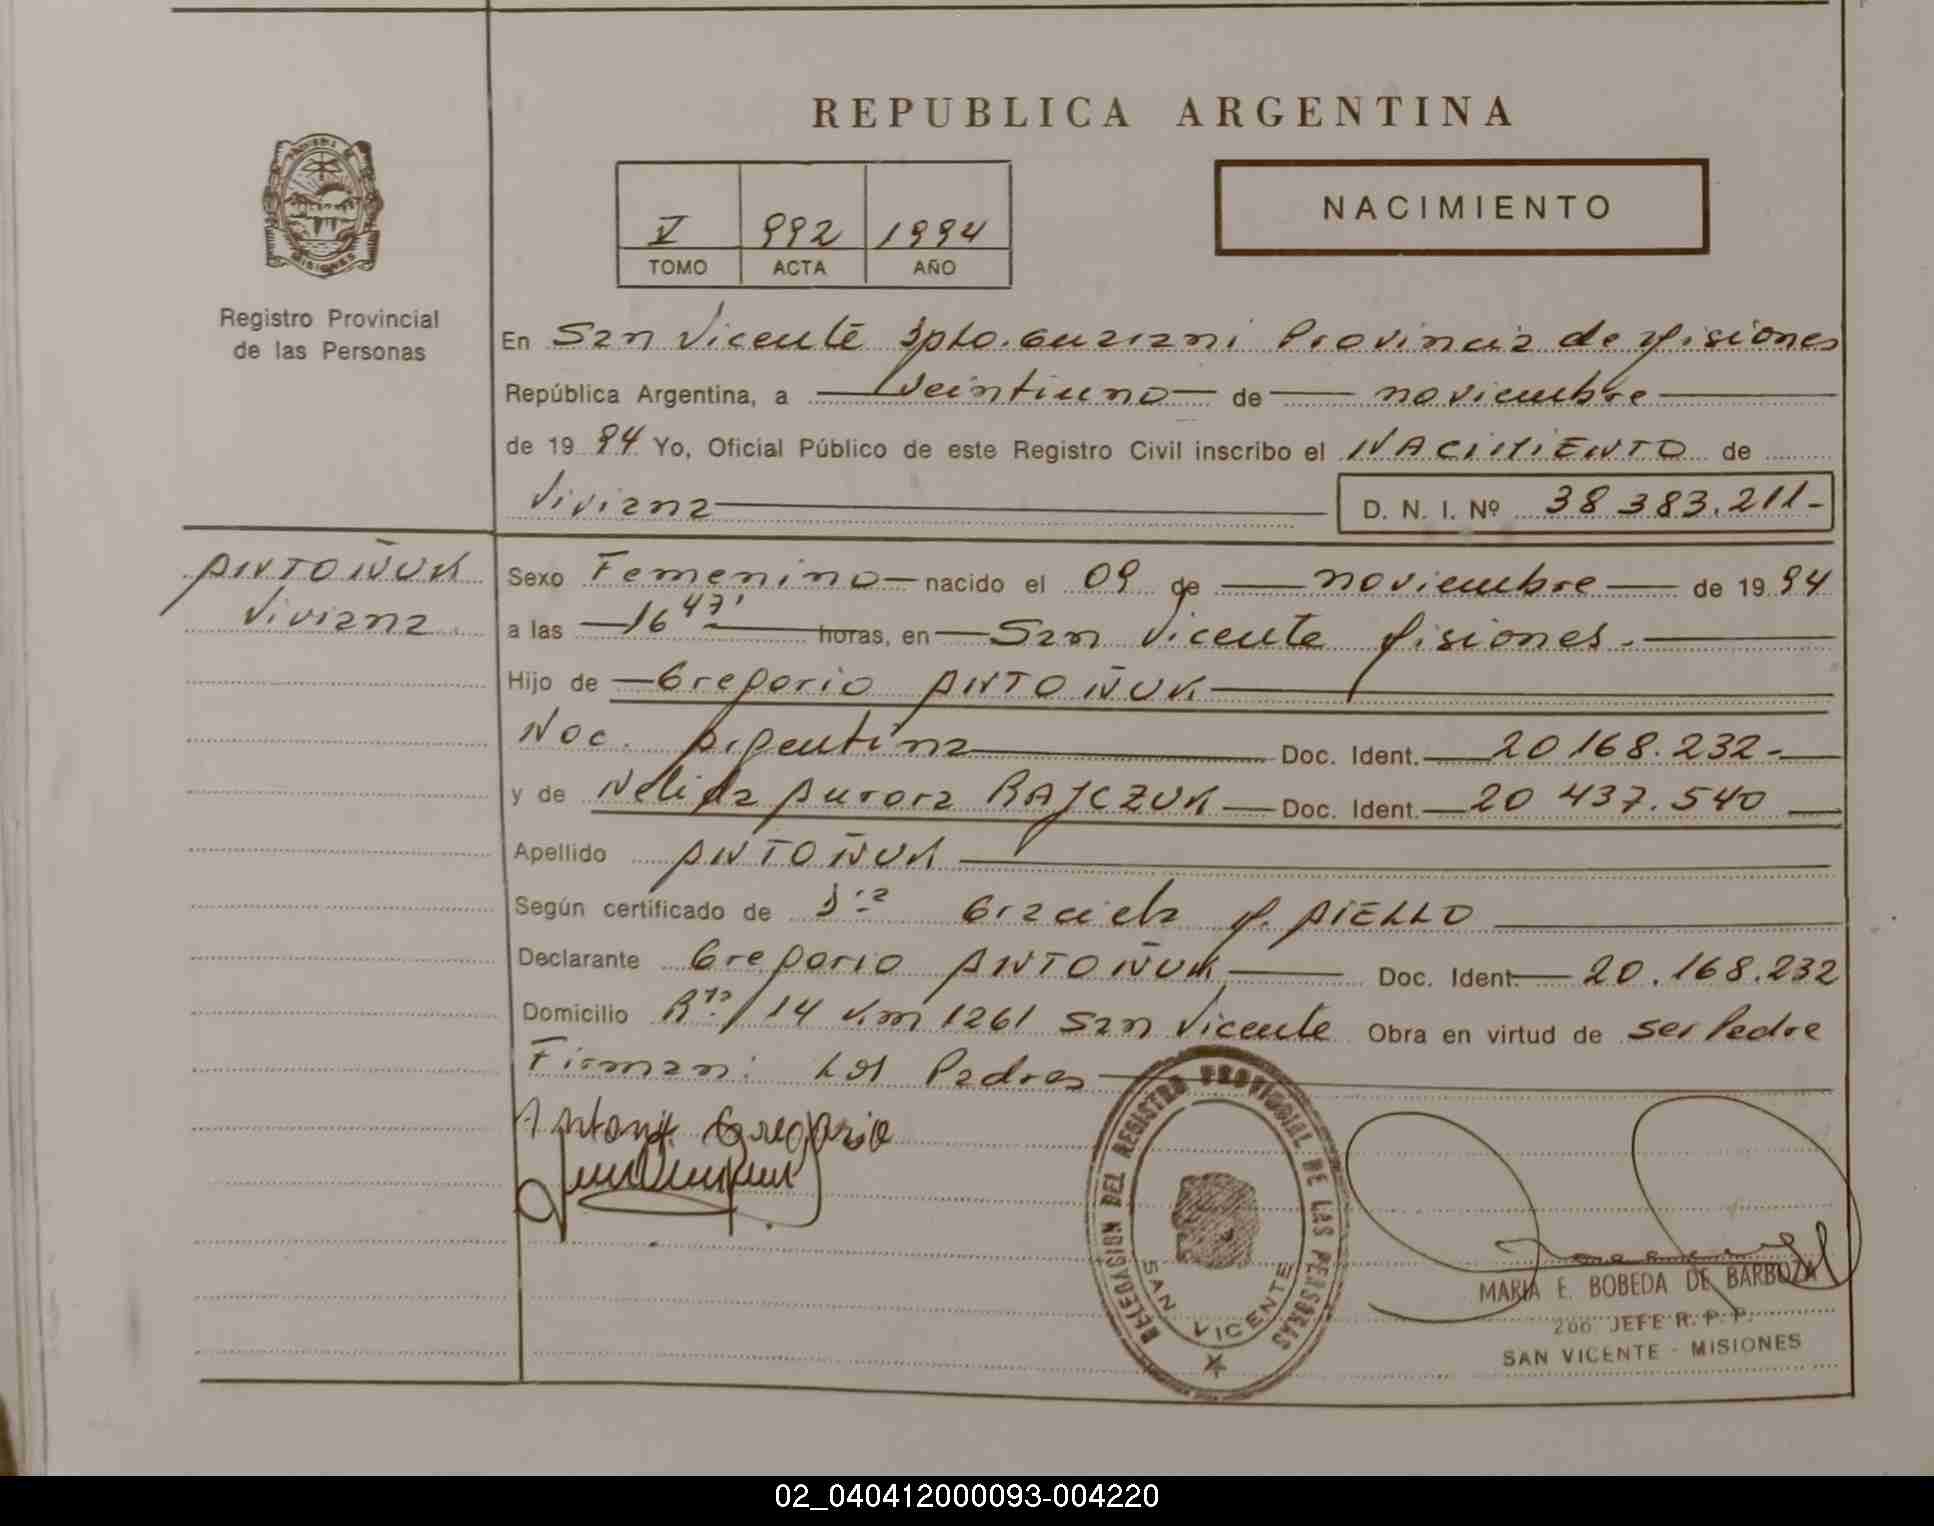 REPUBLICA ARGENTINA
V 992 1994
TOMO ACTA AÑO
NACIMIENTO
PROVINCIA DE
MISIONES
Registro Provincial
de las Personas
En San Vicente Dpto. Guarani Provincia de Misiones
República Argentina, a veintiuno de noviembre
de 19 94 Yo, Oficial Público de este Registro Civil inscribo el NACIMIENTO de
Viviana D. N. I. Nº 38 383.211-
ANTOÑUK
Viviana
Sexo Femenino nacido el 09 de noviembre de 19 94
a las 16 47' horas, en San Vicente Misiones.
Hijo de Gregorio ANTOÑUK
Nac. Argentina Doc. Ident. 20 168.232-
y de Nelida Aurora RAJCZUK Doc. Ident. 20 437.540
Apellido ANTOÑUK
Según certificado de Dra Graciela M. AIELLO
Declarante Gregorio ANTOÑUK Doc. Ident. 20.168.232
Domicilio Rta/14 Km 1261 San Vicente Obra en virtud de ser Padre
Firman: Los Padres
Gregorio
DELEGACION DEL REGISTRO PROVINCIAL DE LAS PERSONAS
SAN VICENTE
MARIA E. BOBEDA DE BARBOZA
2do. JEFE R. P. P.
SAN VICENTE - MISIONES
02_040412000093-004220